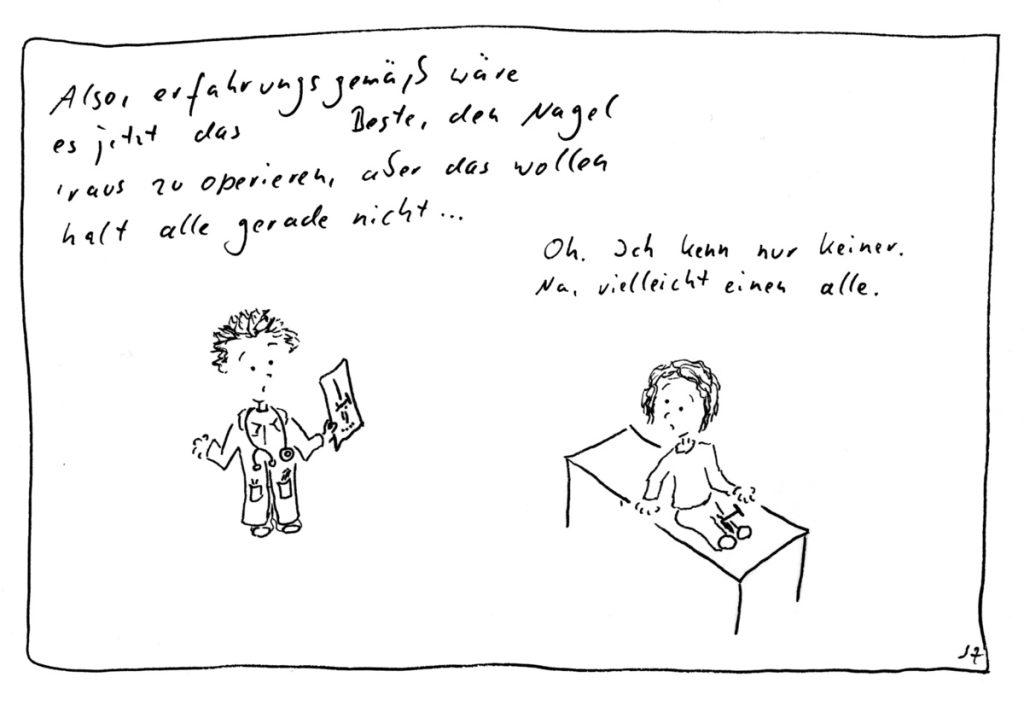 Also, erfahrungsgemäß wäre
es jetzt das Beste, den Nagel
'raus zu operieren, aber das wollen
halt alle gerade nicht...
Oh. Ich kenn nur keiner.
Na, vielleicht einen alle.